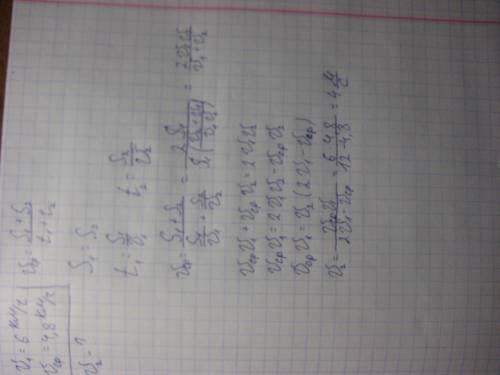 v₁ = 6 км/ч
vср = 4,8 км/ч
v₂ - ?
vср = (S₁ + S₂)/(t₁ + t₂)
S₁ = S₂
t₁ = S₁/v₁   t₂ = S₂/v₂
vср = (S₁ + S₂)/(S₁/v₁ + S₂/v₂) = 2 S₁/(S₁((v₂ + v₁)/(v₁ v₂))) = 2 v₁ v₂/(v₁ + v₂)
vср v₁ + vср v₂ = 2 v₁ v₂
vср v₁ = 2 v₁ v₂ - vср v₂
vср v₁ = v₂ (2 v₁ - vср)
v₂ = vср v₁/(2 v₁ - vср) = 6·4,8/(12 - 4,8) = 4 м/с